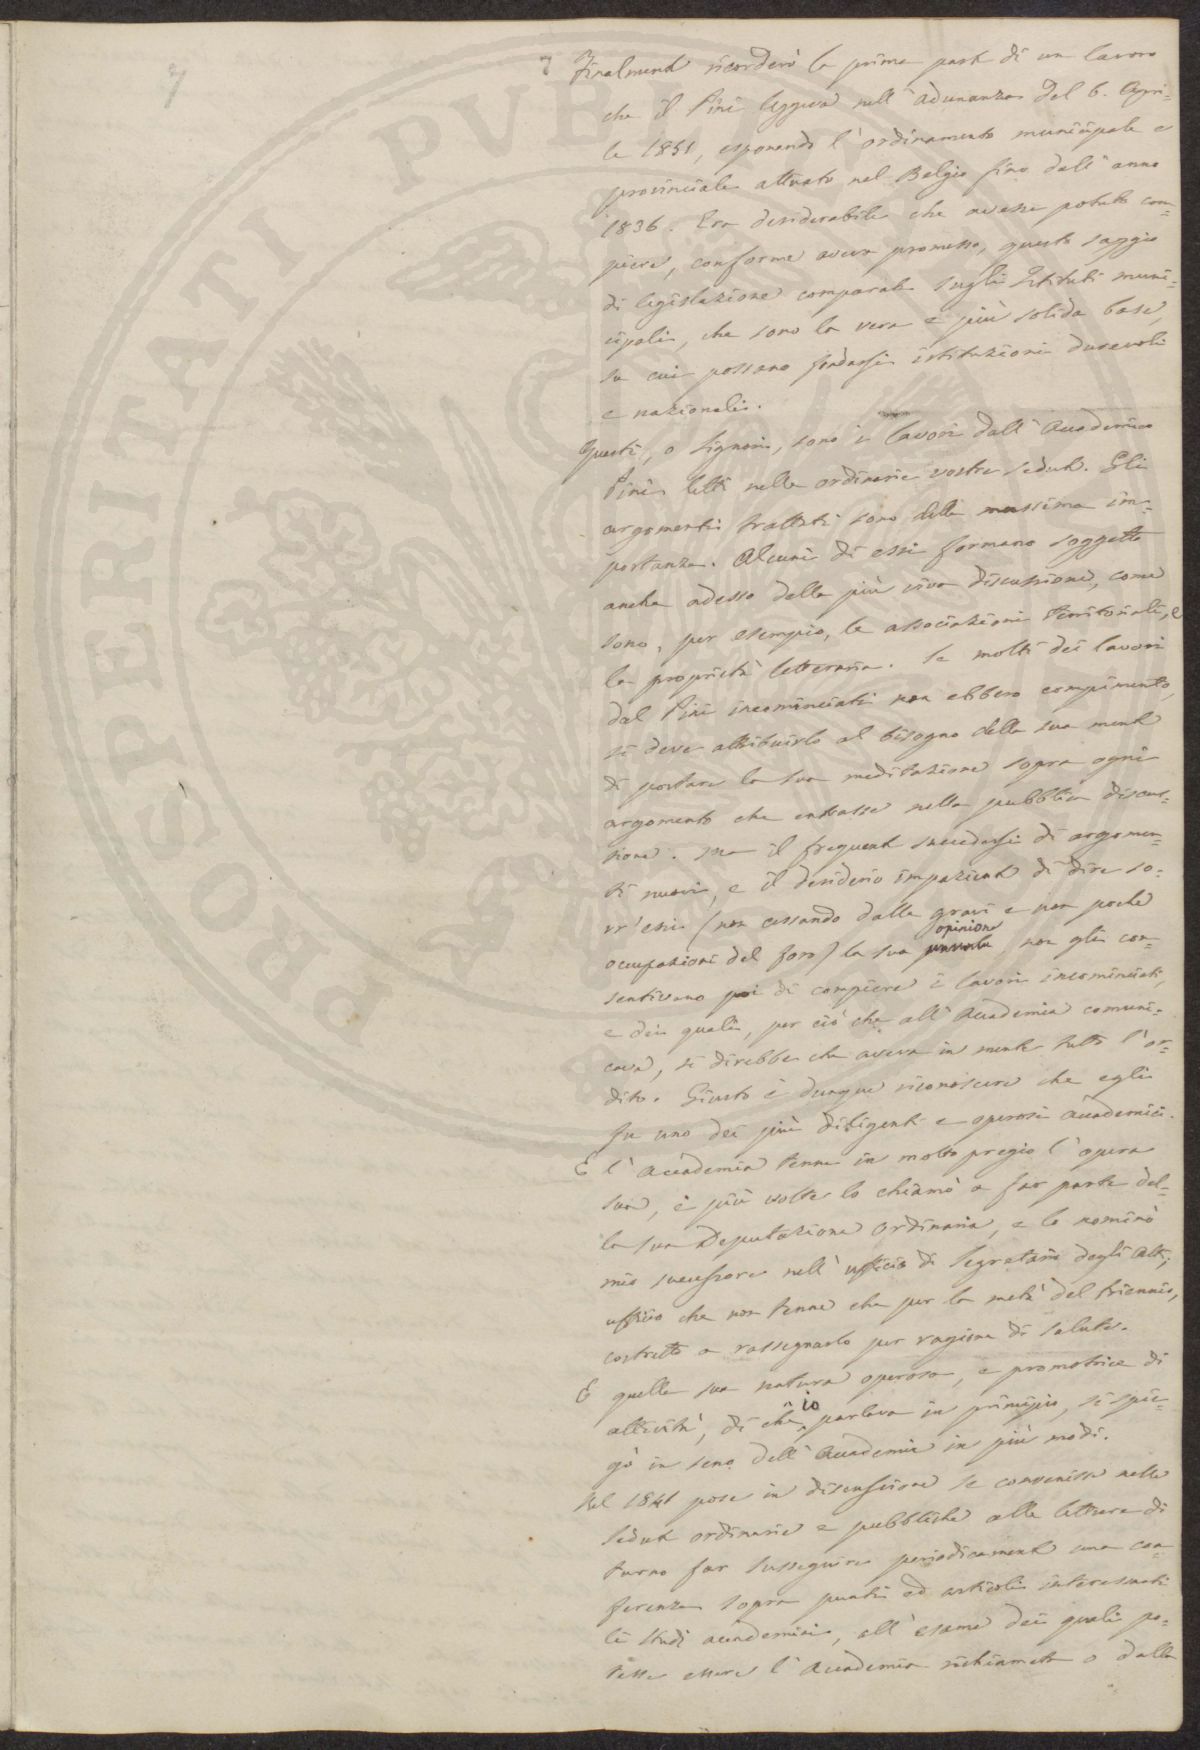 7
7 Finalmente ricorderò la prima parte di un lavoro
che il Pini leggeva nell'adunanza del 6. Apri-
le 1851, esponendo l'ordinamento municipale e
provinciale attivato nel Belgio fino dall'anno
1836. Era desiderabile che avesse potuto com-
piere, conforme aveva promesso, questo saggio
di legislazione comparata sugli Istituti muni-
cipali, che sono la vera e più solida base,
su cui possano fondarsi istituzioni durevoli
e nazionali.
Questi, o Signori, sono i lavori dall'Accademico
Pini letti nelle ordinarie vostre sedute. Gli
argomenti trattati sono della massima im-
portanza. Alcuni di essi formano soggetto
anche adesso della più viva discussione, come
sono, per esempio, le associazioni territoriali, e
la proprietà letteraria. Se molti dei lavori
dal Pini incominciati non ebbero compimento,
si deve attribuirlo al bisogno della sua mente
di portare la sua meditazione sopra ogni
argomento che entrasse nella pubblica discus-
sione. Ma il frequente succedersi di argomen-
ti nuovi, e il desiderio impaziente di dire so-
vr'essi (non cessando dalle gravi e non poche
opinione
occupazioni del foro) la sua non gli con-
sentivano poi di compiere i lavori incominciati,
e dei quali, per ciò che all'Accademia comuni-
cava, si direbbe che aveva in mente tutto l'or-
dito. Giusto è dunque riconoscere che egli
fu uno dei più diligenti e operosi accademici.
E l'Accademia tenne in molto pregio l'opera
sua, e più volte lo chiamò a far parte del-
la sua Deputazione ordinaria, e lo nominò
mio successore nell'ufficio di Segretario degli Atti;
ufficio che non tenne che per la metà del triennio,
costretto a rassegnarlo per ragione di salute.
E quella sua natura operosa, e promotrice di
io
attività, di che parlava in principio, si spie-
gò in seno dell'Accademia in più modi.
Nel 1841 pose in discussione se convenisse nelle
sedute ordinarie e pubbliche alle letture di
turno far susseguire periodicamente una con-
ferenza sopra punti ed articoli interessanti
li studi accademici, all'esame dei quali po-
tesse essere l'Accademia richiamata o dalla